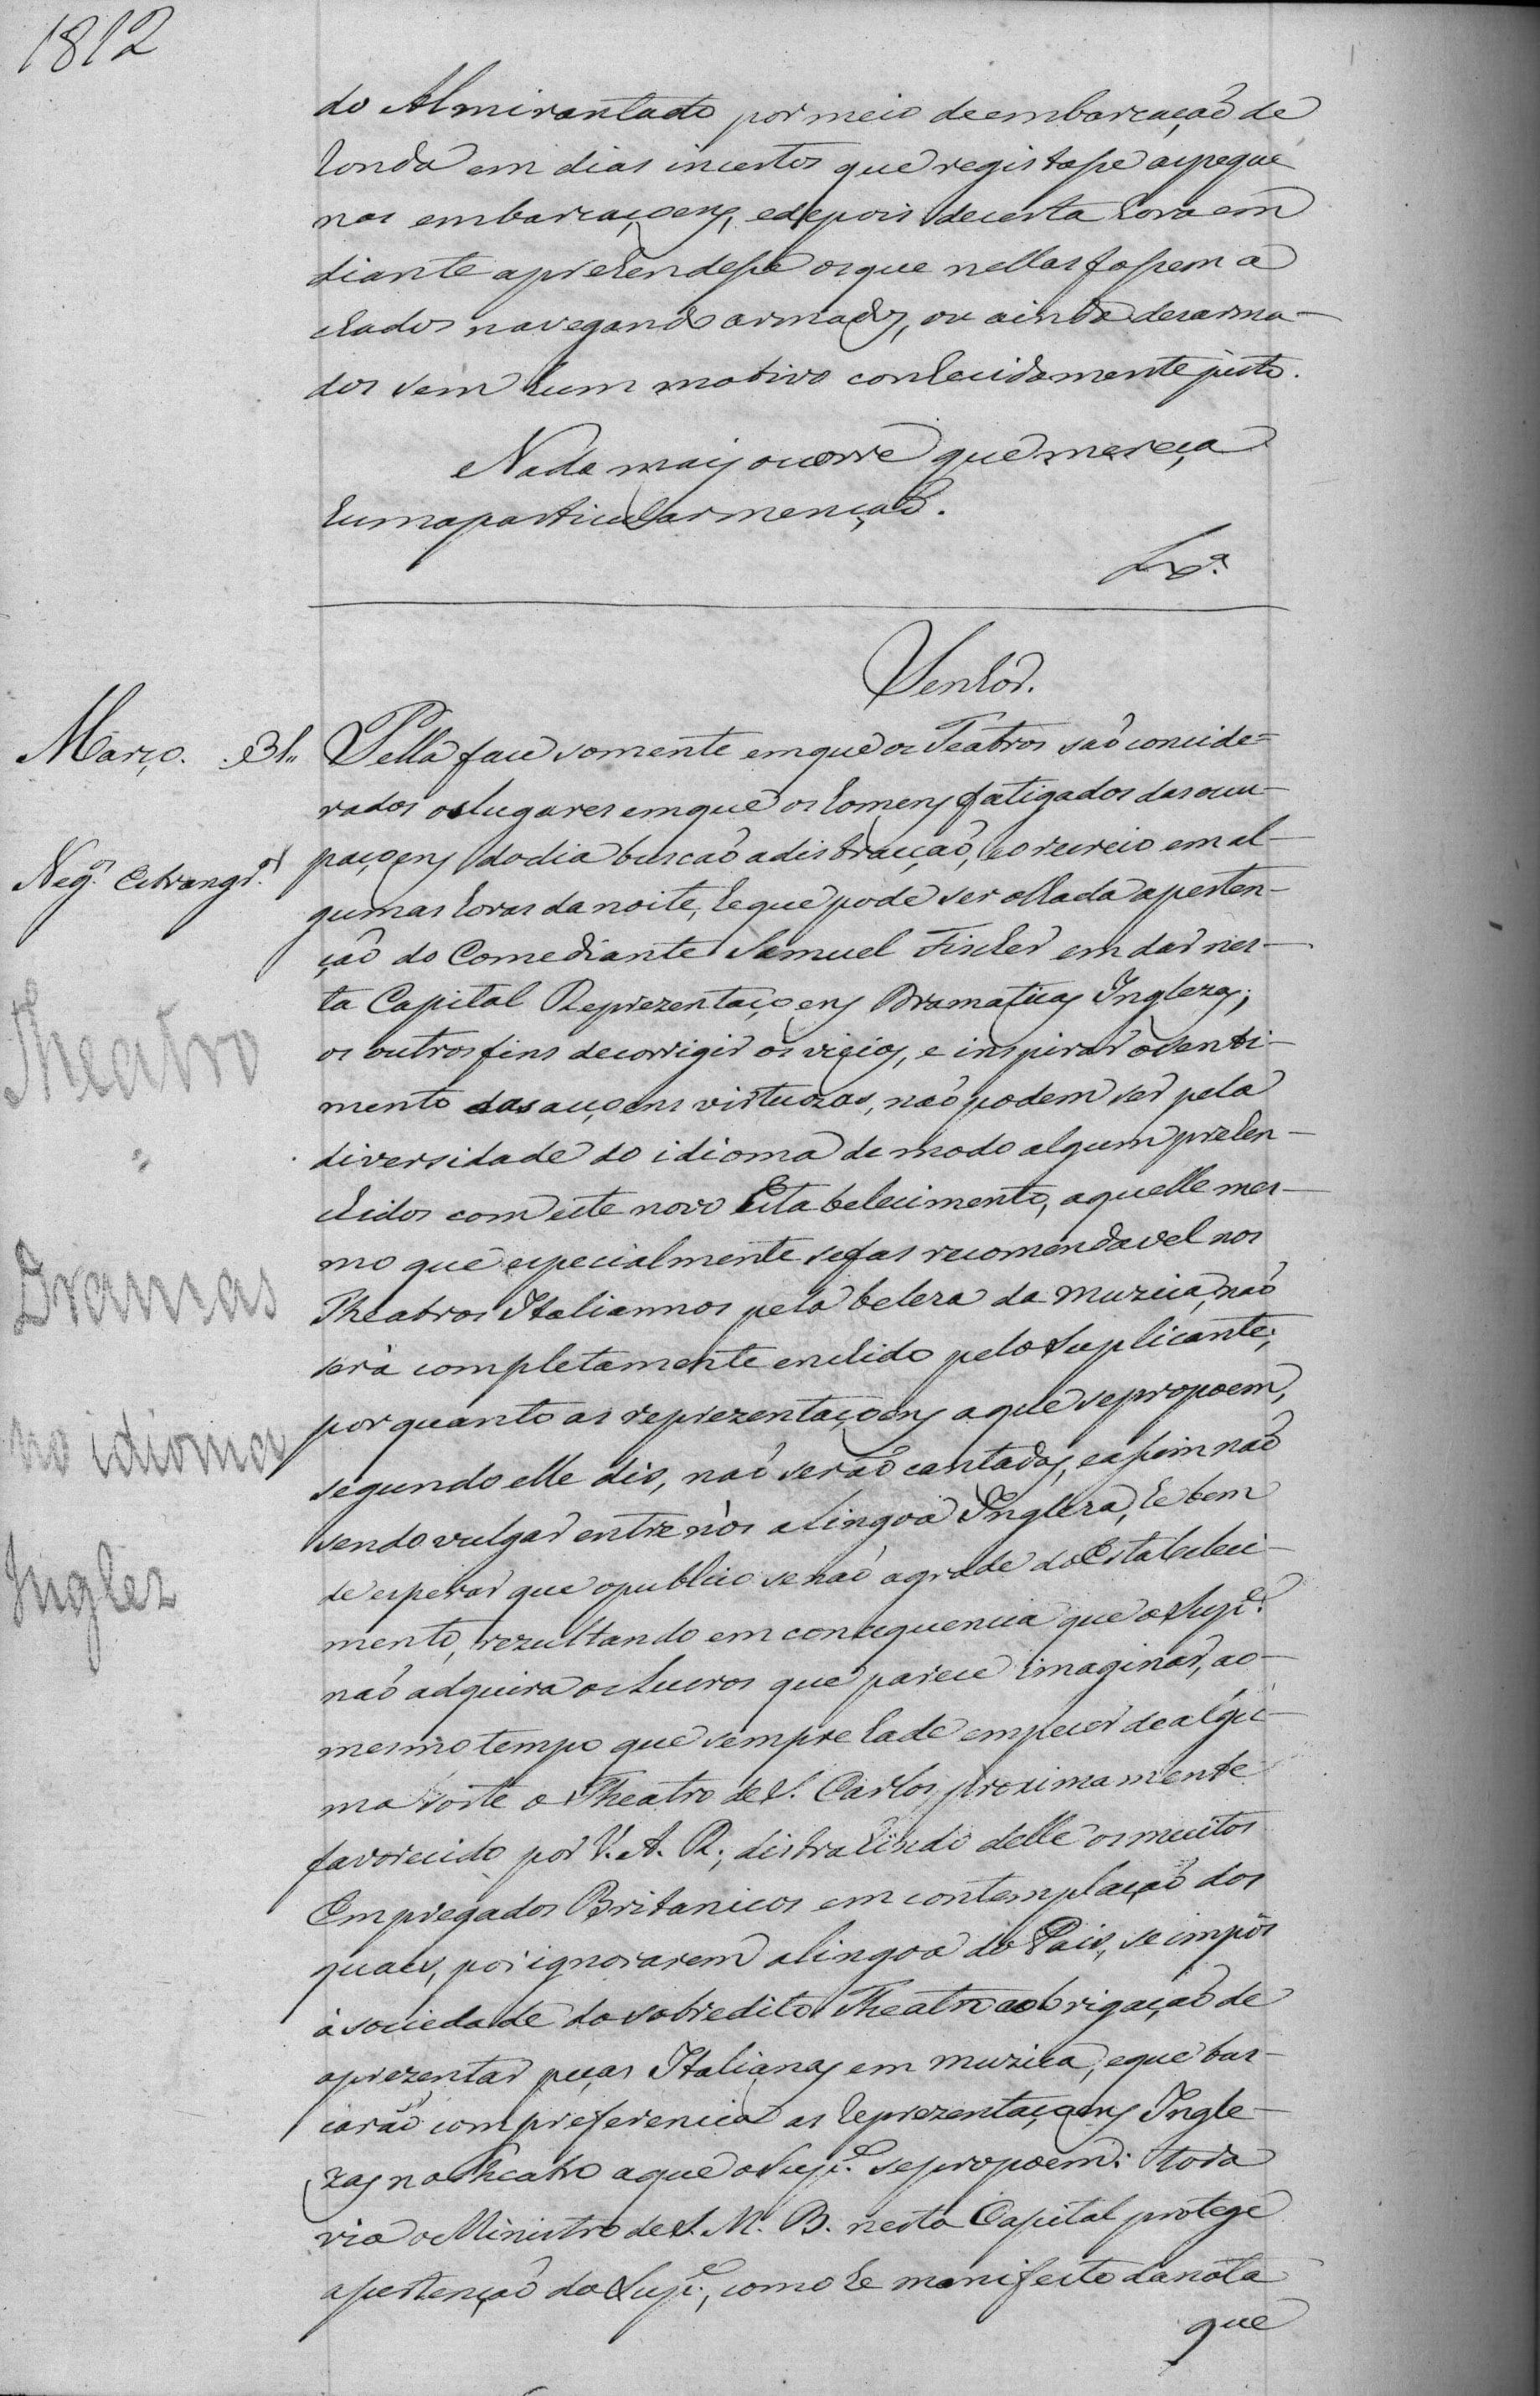 1812
do Almirantado por meio de embarcação de
ronda em dias incertos que registasse as peque
nas embarcaçoens, e depois de certa hora em
diante aprehendesse os que nellas fossem a
chados navegando armados, ou ainda desarma-
dos sem hum motivo conhecidamente justo.
Nada mais ocorre que mereça
huma particular menção.
Lxª.
Senhor.
Março. 31.. Pella face somente em que os Teatros são concide=
rados os lugares em que os homens fatigados das ocu-
Negos. Estrangros. paçoens do dia buscão a distracção, e o recreio em al-
gumas horas da noite, he que pode ser olhada a perten-
ção do Comediante Samuel Fisher em dar nes-
ta Capital Reprezentaçoens Dramaticas Inglezas;
Theatro
os outros fins de corrigir os vicios, e inspirar o senti-
mento das acçoens virtuozas, não podem ser pela
=
diversidade do idioma de modo algum prehen-
chidos com este novo Estabelecimento, aquelle mes-
mo que especialmente se fas recomendavel nos
Dramas
Theatros Italiannos pela beleza da muzica, não
será completamente enchido pelo Suplicante;
por quanto as reprezentaçoens a que se propoem,
no idioma
segundo elle dis, não serão cantadas, e assim não
sendo vulgar entre nós a lingoa Ingleza, he bem
Inglez
de esperar que o publico se não agrade do Estabeleci-
mento, rezultando em consequencia que o Supe.
não adquira os lucros que parece imaginar, ao
mesmo tempo que sempre hade empecer de algu-
ma sorte o Theatro de S. Carlos proximamente
favorecido por V. A. R., distrahindo delle os muitos
Empregados Britanicos em contemplação dos
quaes, por ignorarem a lingoa do Pais, se impôs
á sociedade do sobredito Theatro a obrigação de
aprezentar peças Italianas em muzica, e que bus-
carão com preferencia as reprezentaçoens Ingle-
zas no Theatro a que o Supe. se propoem: toda
via o Ministro de S. M. B. nesta Capital protege
a pertenção do Supe., como he manifesto da nota
que